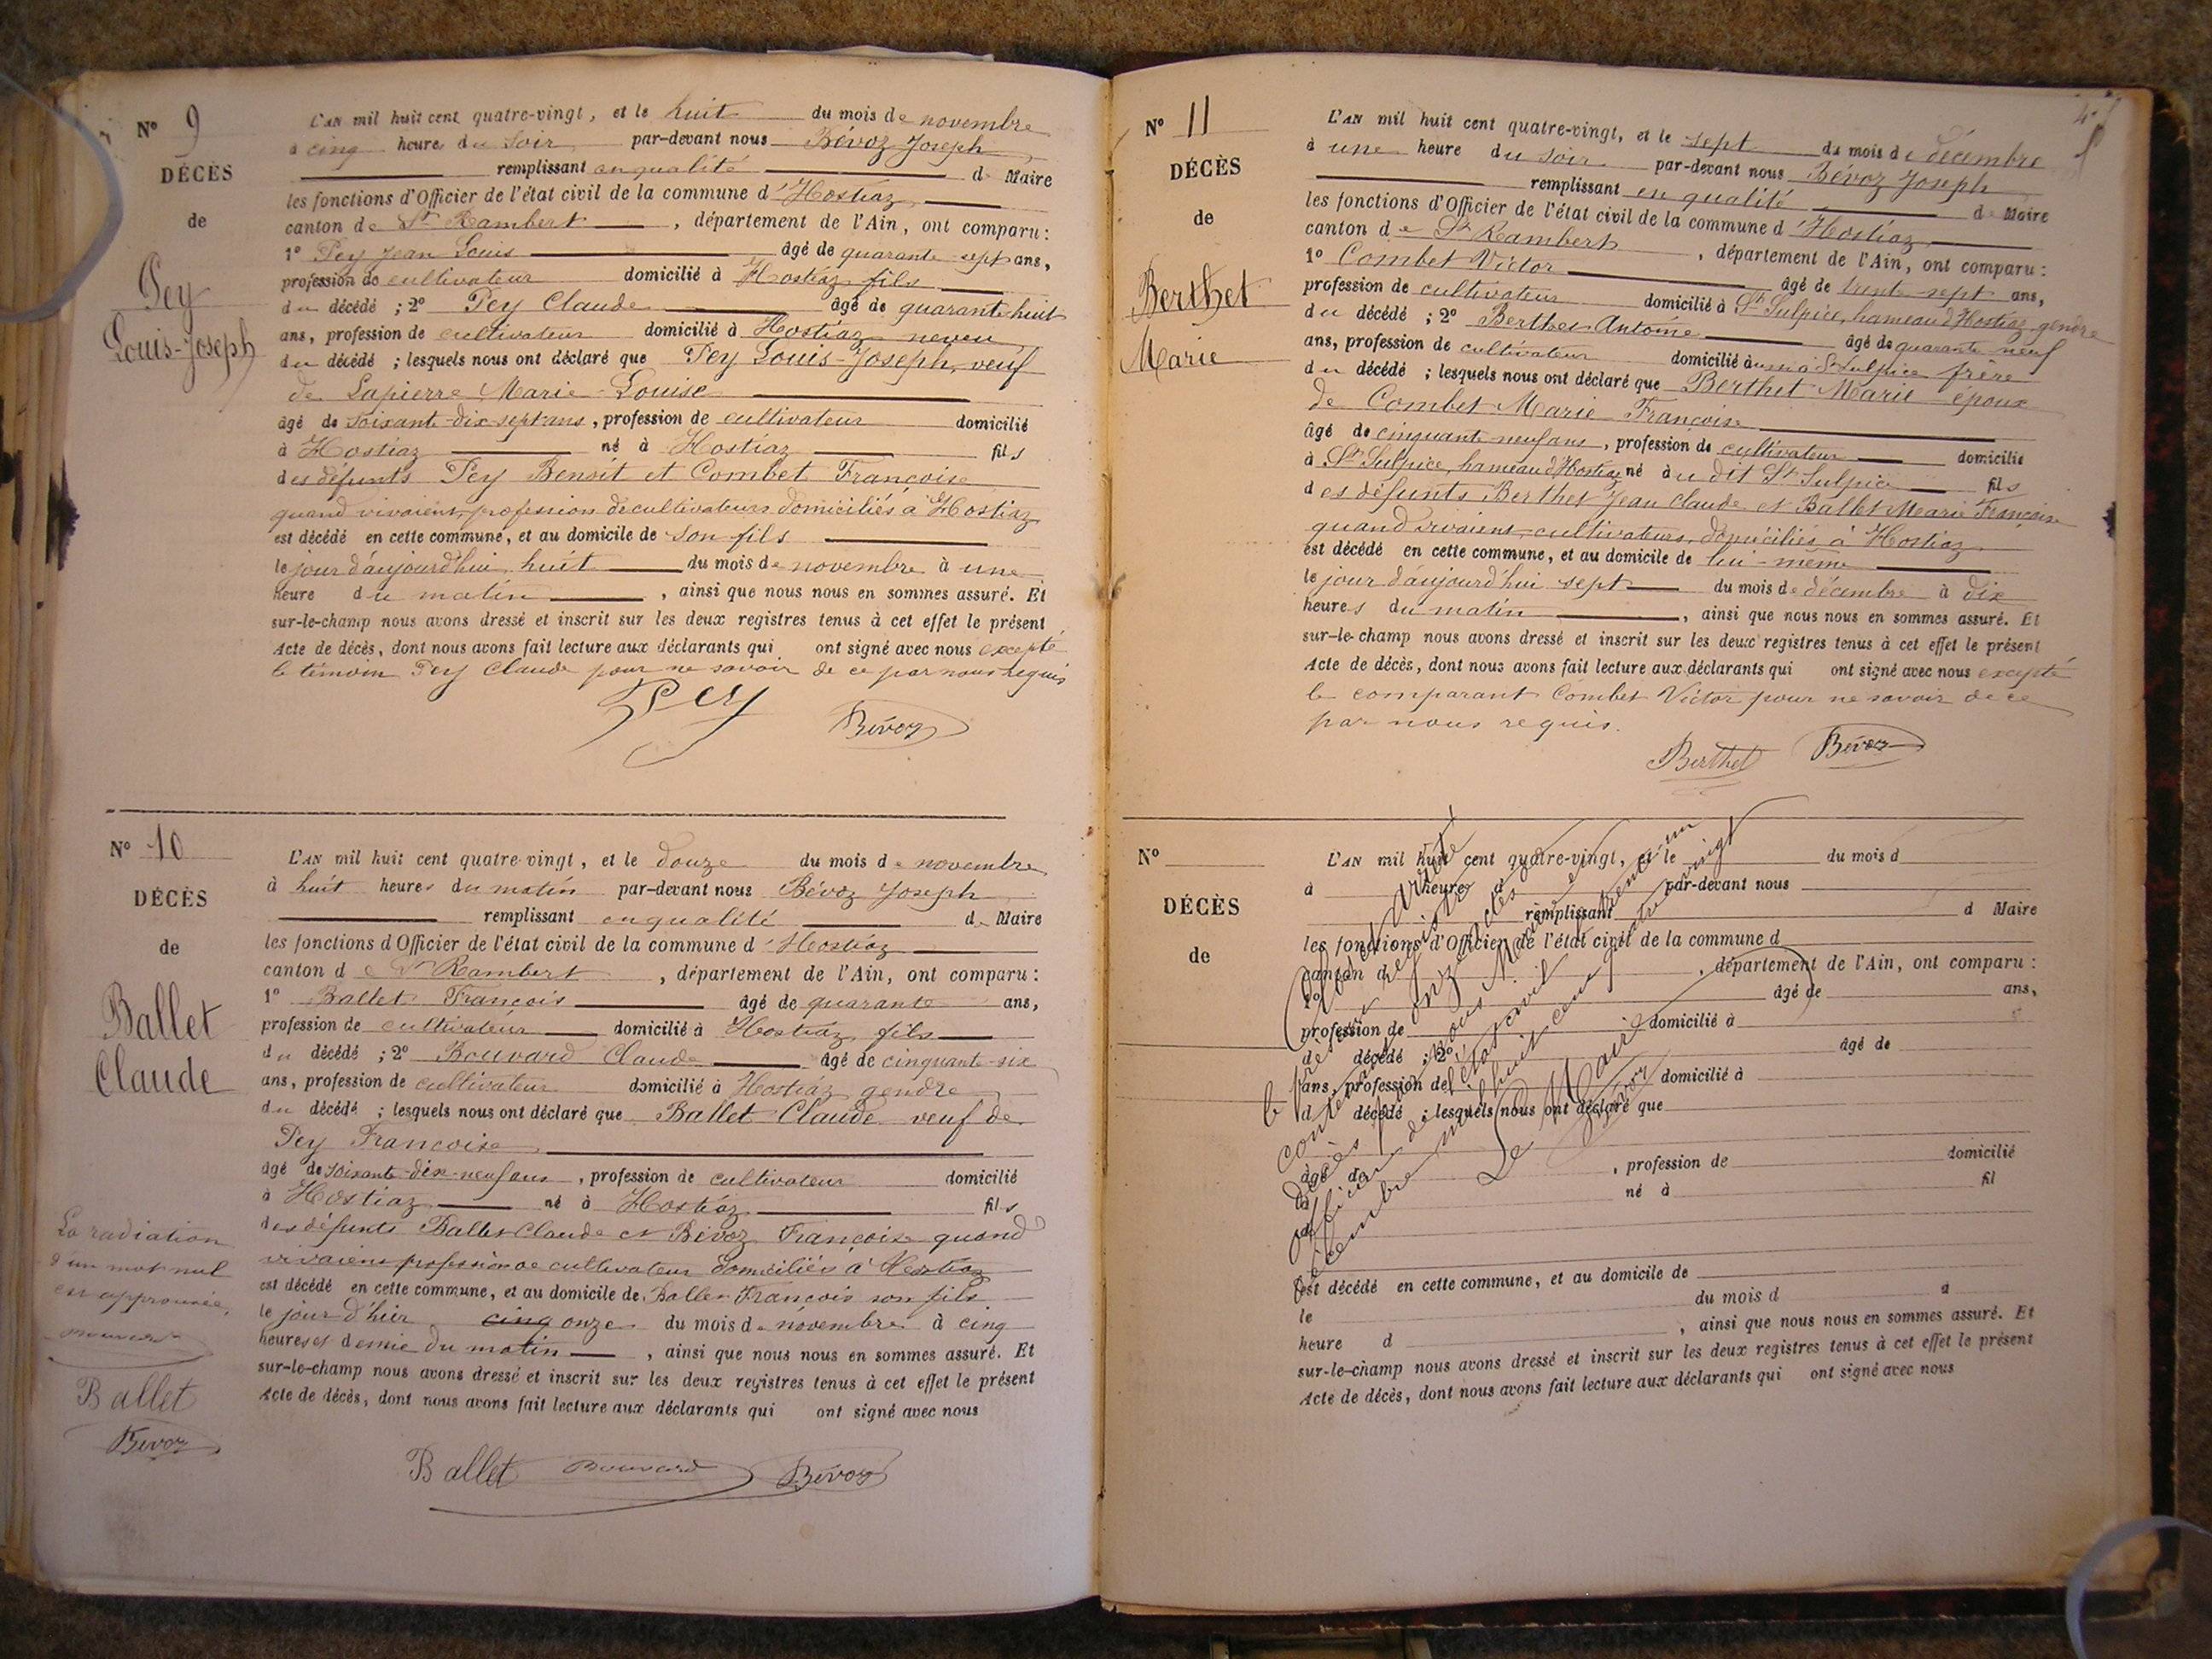 N° 9
DÉCÈS
de
Pey
Louis-Joseph
L'AN mil huit cent quatre-vingt, et le huit du mois de novembre
à cinq heure du soir par-devant nous Bévoz Joseph
remplissant en qualité de Maire
les fonctions d'Officier de l'état civil de la commune d'Hostiaz
canton de St Rambert, département de l'Ain, ont comparu :
1° Pey Jean Louis âgé de quarante-sept ans,
profession de cultivateur domicilié à Hostiaz fils
du décédé ; 2° Pey Claude âgé de quarante huit
ans, profession de cultivateur domicilié à Hostiaz neveu
du décédé ; lesquels nous ont déclaré que Pey Louis-Joseph, veuf
de Lapierre Marie-Louise
âgé de soixant-dix-sept ans, profession de cultivateur domicilié
à Hostiaz né à Hostiaz fils
des défunts Pey Benoit et Combet Françoise
quand vivaient, profession de cultivateurs domiciliés à Hostiaz
est décédé en cette commune, et au domicile de son fils
le jour d'aujourd'hui huit du mois de novembre à une
heure du matin, ainsi que nous nous en sommes assuré. Et
sur-le-champ nous avons dressé et inscrit sur les deux registres tenus à cet effet le présent
Acte de décès, dont nous avons fait lecture aux déclarants qui ont signé avec nous excepté
le témoin Pey Claude pour ne savoir de ce par nous requis
Pey Bévoz
N° 10
DÉCÈS
de
Ballet
Claude
L'AN mil huit cent quatre-vingt, et le douze du mois de novembre
à huit heures du matin par-devant nous Bévoz Joseph
remplissant en qualité de Maire
les fonctions d'Officier de l'état civil de la commune d'Hostiaz
canton de St Rambert, département de l'Ain, ont comparu :
1° Ballet François âgé de quarante ans,
profession de cultivateur domicilié à Hostiaz fils
du décédé ; 2° Bouvard Claude âgé de cinquante-six
ans, profession de cultivateur domicilié à Hostiaz gendre
du décédé ; lesquels nous ont déclaré que Ballet Claude veuf de
Pey Françoise
âgé de soixante-dix-neuf ans, profession de cultivateur domicilié
à Hostiaz né à Hostiaz fils
des défunts Ballet Claude et Bévoz Françoise quand
vivaient profession de cultivateur domiciliés à Hostiaz
est décédé en cette commune, et au domicile de Ballet François son fils
le jour d'hier cinq onze du mois de novembre à cinq
heures et demie du matin, ainsi que nous nous en sommes assuré. Et
sur-le-champ nous avons dressé et inscrit sur les deux registres tenus à cet effet le présent
Acte de décès, dont nous avons fait lecture aux déclarants qui ont signé avec nous
La radiation
d'un mot nul
est approuvée,
Bouvard
Ballet
Bévoz
Ballet Bouvard Bévoz
N° 11
DÉCÈS
de
Berthet
Marie
L'AN mil huit cent quatre-vingt, et le sept du mois de décembre
à une heure du soir par-devant nous Bévoz Joseph
remplissant en qualité de Maire
les fonctions d'Officier de l'état civil de la commune d'Hostiaz
canton de St Rambert, département de l'Ain, ont comparu :
1° Combet Victor âgé de trente-sept ans,
profession de cultivateur domicilié à St Sulpice, hameau d'Hostiaz, gendre
du décédé ; 2° Berthet Antoine âgé de quarante neuf
ans, profession de cultivateur domicilié à aussi à St Sulpice frère
du décédé ; lesquels nous ont déclaré que Berthet Marie époux
de Combet Marie Françoise
âgé de cinquante-neuf ans, profession de cultivateur domicilié
à St Sulpice, hameau d'Hostiaz né au dit St Sulpice fils
des défunts Berthet Jean Claude et Ballet Marie Françoise
quand vivaient, cultivateurs, domiciliés à Hostiaz
est décédé en cette commune, et au domicile de lui-même
le jour d'aujourd'hui sept du mois de décembre à dix
heures du matin, ainsi que nous nous en sommes assuré. Et
sur-le-champ nous avons dressé et inscrit sur les deux registres tenus à cet effet le présent
Acte de décès, dont nous avons fait lecture aux déclarants qui ont signé avec nous excepté
le comparant Combet Victor pour ne savoir de ce
par nous requis.
Berthet Bévoz
N°
DÉCÈS
de
L'AN mil huit cent quatre-vingt, et le du mois d
à heure d par-devant nous
remplissant d Maire
les fonctions d'Officier de l'état civil de la commune d
canton d, département de l'Ain, ont comparu :
1° âgé de ans,
profession de domicilié à
d décédé ; 2° âgé de
ans, profession de domicilié à
d décédé ; lesquels nous ont déclaré que
âgé de, profession de domicilié
à né à fil
d
est décédé en cette commune, et au domicile de
le du mois d à
heure d, ainsi que nous nous en sommes assuré. Et
sur-le-champ nous avons dressé et inscrit sur les deux registres tenus à cet effet le présent
Acte de décès, dont nous avons fait lecture aux déclarants qui ont signé avec nous
Clos et arrêté
le présent registre
contenant onze actes de
décès par nous Maire et
officier de l'état civil le trente un
décembre mil huit cent quatre vingt
Le Maire
Bévoz